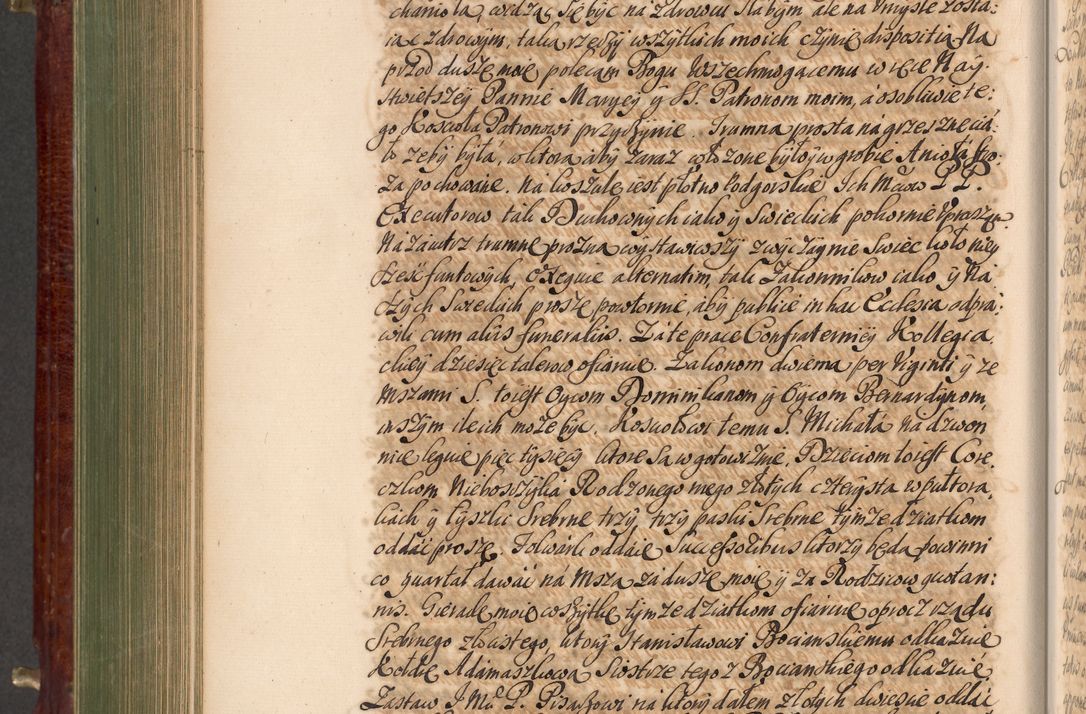 chaniola, widząc się być na zdrowiu słabym ale na umysle zosta:
iąc zdrowym, taką rzeczy wszytkich moich czynię dispositią Na
przod duszę moię polecam Bogu Wszechmogącemu w ięce Nay:
Swietszey Pannie Maryey y SS. Patronom moim, á osobliwie te:
go Kosciola Patronowi przyczynie. Trumna prosta ná grzeszne cia:
ło żeby byłá, w ktorą aby zaraz włożone było y w grobie Aniołá Stro:
ża pochowane. Na koszulę iest płotno Podgorskie Ich Mciow PP.
Executorow tak Duchownych iako y Swieckich pokornie upraszam
Nazáiutrz trumnę prożną wystawiwszy zwyczayme swiec koło niey
sześć funtowych, exequie alternatim, tak Zakonnikow iako y Na:
szych Swieckich proszę powtornie, aby publice in hac Ecclesia odpra:
wili cum aliis funeraliis. Zá te prace Confraterniey Kollegia:
ckiey dziesięć talerow ofiaruię. Zakonom dwiema per Viginti y ze
Mszami S. toiest Oycom Dominikanom y Oycom Bernardynom,
w szym ile ich może być. Kosciołowi temu S. Michałá na dzwon:
nicę leguię pięć tysięcy ktore są w gotowiznie, Dzieciom toiest Core:
czkom Nieboszczyka Rodzonego mego złotych czterysta w pułtora:
kách y łyszki srebrne trzy, trzy paski srebrne tymże dziatkom
oddáć proszę. Folwark oddaię Successoribus ktorzy będą powinni
co quartał dawáć ná Mszą zá duszę moię y zá Rodzicow quotan:
nis. Gierade moię wszytkę tymże dziatkom ofiaruię oprocz rzędu
srebrnego złocistego, ktory Stanisławowi Bocianskiemu odkazuię
Kołdrę Adamaszkową Siostrze tego z Bocianskiego odkazuię,
Zastaw J Me P. Pisarzowi na ktory dałem złotych dwiescie oddáć